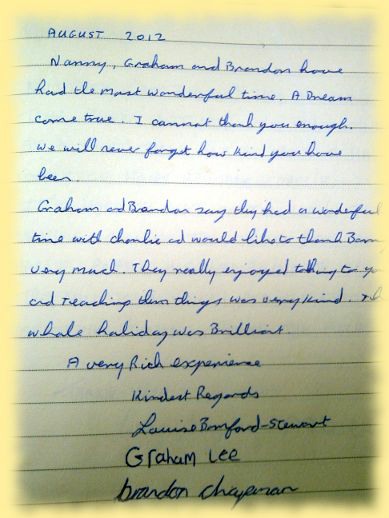 AUGUST 2012
Nanny, Graham and Brandon have
had the most wonderful time. A Dream
come true. I cannot thank you enough.
We will never forget how kind you have
been.
Graham and Brandon say they had a wonderful
time with charlie and would like to thank
very much. They really enjoyed talking to
and Teaching them things was very kind.
whole holiday was Brilliant.
A very Rich experience
Kindest Regards
Louise Bamford-Stewart
Graham Lee
brandon chapman